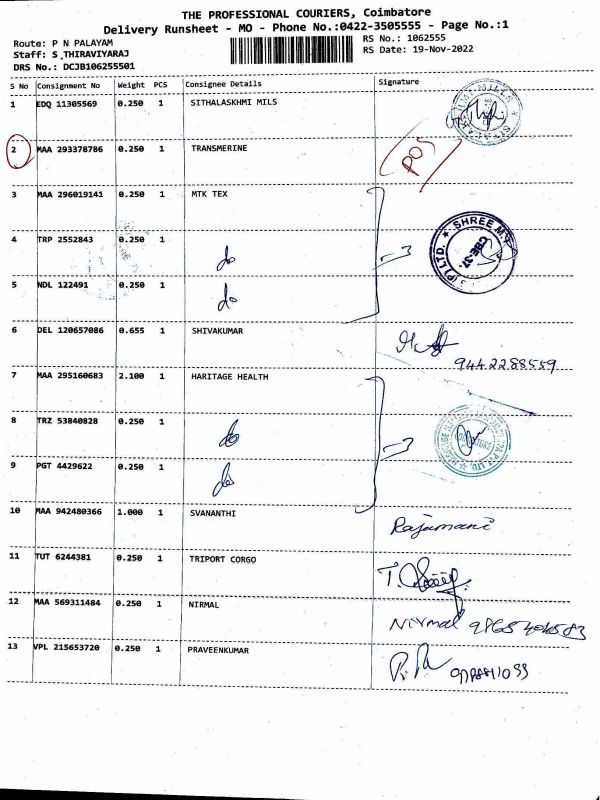 THE PROFESSIONAL COURIERS, Coimbatore
Delivery Runsheet - MO - Phone No.:0422-3505555 - Page No.:1
Route: P N PALAYAM RS No.: 1062555
Staff: S THIRAVIYARAJ RS Date: 19-Nov-2022
DRS No.: DCJB106255501
S No Consignment No Weight PCS Consignee Details Signature
1 EDQ 11305569 0.250 1 SITHALASKHMI MILS
2 MAA 293378786 0.250 1 TRANSMERINE
3 MAA 296019141 0.250 1 MTK TEX
4 TRP 2552843 0.250 1 do 3 SHREE (P) LTD. CBE-37.
5 NDL 122491 0.250 1 do
6 DEL 120657086 0.655 1 SHIVAKUMAR
9442288559
7 MAA 295160683 2.100 1 HARITAGE HEALTH
8 TRZ 53840828 0.250 1 do 3
9 PGT 4429622 0.250 1 do
10 MAA 942480366 1.000 1 SVANANTHI Rajamani
11 TUT 6244381 0.250 1 TRIPORT CORGO
12 MAA 569311484 0.250 1 NIRMAL Nirmal
13 VPL 215653720 0.250 1 PRAVEENKUMAR